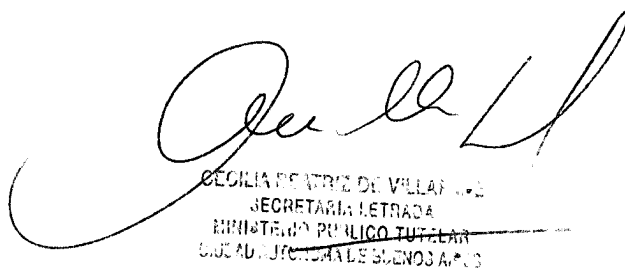 CECILIA BEATRIZ DE
SECRETARIA LETRADA
MINISTERIO PUBLICO TUTELAR
CIUDAD AUTONOMA DE BUENOS AIRES